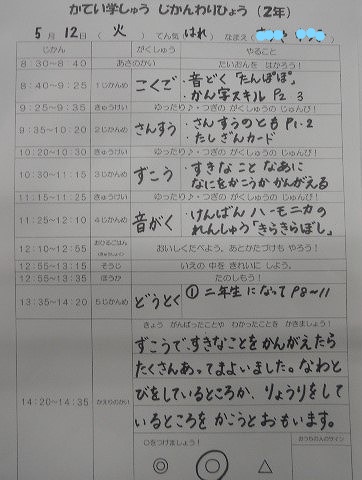 かてい学しゅう じかんわりひょう（2年）
5月12日（火）てん気 はれ なまえ（
じかん がくしゅう やること
8:30~8:40 あさのかい たいおんを はかろう！
8:40~9:25 1じかんめ こくご ・音どく「たんぽぽ」
・かん字スキル P2 3
9:25~9:35 きゅうけい ゆったり♪・つぎの がくしゅうの じゅんび！
9:35~10:20 2じかんめ さんすう ・さんすうのとも P1・2
・たしざんカード
10:20~10:30 きゅうけい ゆったり♪・つぎの がくしゅうの じゅんび！
10:30~11:15 3じかんめ ずこう ・すきなこと なあに
なにをかこうか かんがえる
11:15~11:25 きゅうけい ゆったり♪・つぎの がくしゅうの じゅんび！
11:25~12:10 4じかんめ 音がく ・けんばんハーモニカの
れんしゅう「きらきらぼし」
12:10~12:55 おひるごはん おいしくたべよう。あとかたづけも やろう！
12:55~13:15 そうじ いえの 中を きれいに しよう。
12:55~13:35 ほうか たのしもう！
13:35~14:20 5じかんめ どうとく ①二年生に なって P8~11
14:20~14:35 かえりのかい きょう がんばったことや わかったことを かきましょう！
ずこうで、すきなことをかんがえたら
たくさんあってまよいました。なわと
びをしているところか、りょうりをして
いるところを かこうとおもいます。
○をつけましょう！ おうちの人のサイン
◎ ○ △